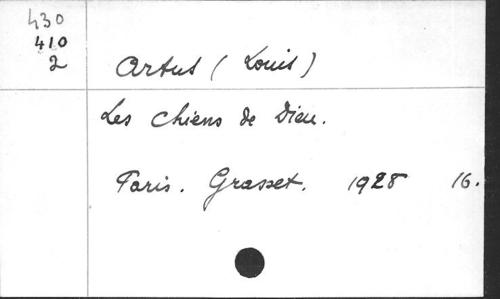 430
410
2
Artus (Louis)
Les chiens de Dieu.
Paris. Grasset. 1928 16.